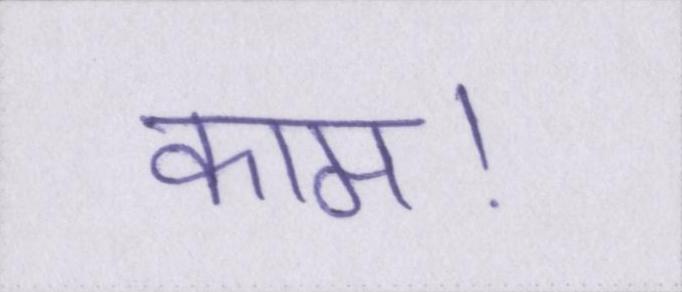 काम!